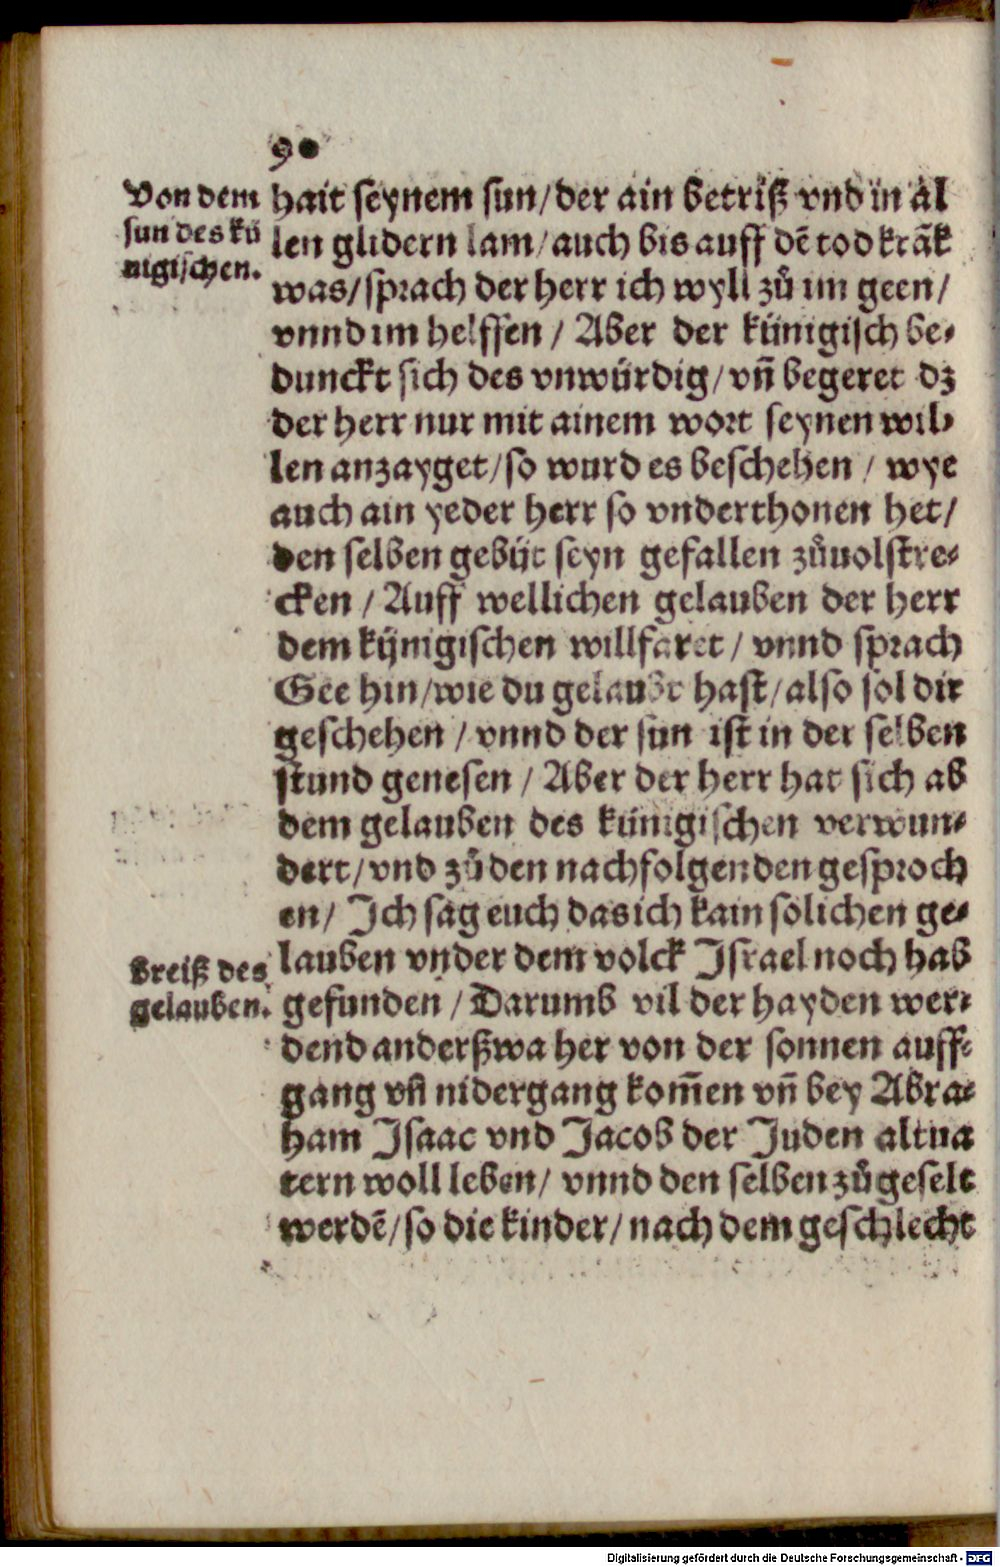 90
Von dem
sun des kü
nigischen.
hait seynem sun/der ain betriß vnd in al
len glidern lam/auch bis auff dē tod krāk
was/sprach der herr ich wyll zů im geen/
vnnd im helffen / Aber der künigisch be-
dunckt sich des vnwürdig/vn̄ begeret dz
der herr nur mit ainem wort seynen wil-
len anzayget/so wurd es beschehen / wye
auch ain yeder herr so vnderthonen het/
den selben gebüt seyn gefallen zůuolstre-
cken / Auff wellichen gelauben der herr
dem kÿnigischen willfaret / vnnd sprach
Gee hin/wie du gelaubt hast/also sol dir
geschehen / vnnd der sun ist in der selben
stund genesen / Aber der herr hat sich ab
dem gelauben des künigischen verwun-
dert/vnd zů den nachfolgenden gesproch
en/ Ich sag euch das ich kain solichen ge-
Breiß des
gelauben.
lauben vnder dem volck Israel noch hab
gefunden / Darumb vil der hayden wer-
dend anderßwa her von der sonnen auff-
gang vn̄ nidergang kom̄en vn̄ bey Abra-
ham Isaac vnd Jacob der Juden altua
tern woll leben/ vnnd den selben zůgeselt
werdē/so die kinder/nach dem geschlecht
Digitalisierung gefördert durch die Deutsche Forschungsgemeinschaft - DFG